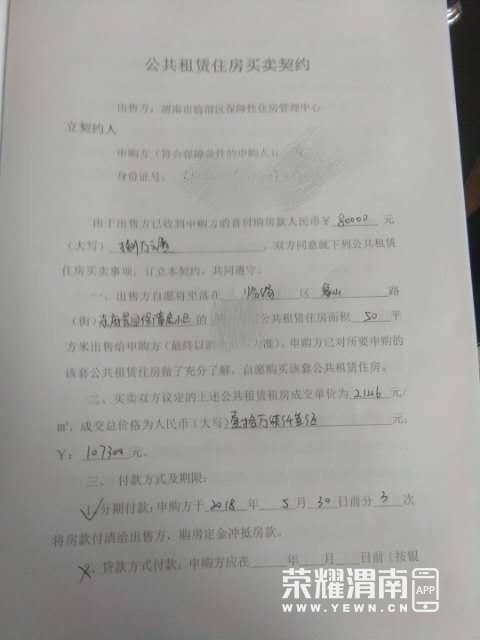 公共租赁住房买卖契约
出售方：渭南市临渭区保障性住房管理中心
立契约人
申购方（符合保障条件的申购人）：
身份证号：
由于出售方已收到申购方的首付购房款人民币￥80000元
（大写）捌万元，双方同意就下列公共租赁
住房买卖事项，订立本契约，共同遵守。
一、出售方自愿将坐落在临渭区 路
（街） 小区的 公共租赁住房面积50平
方米出售给申购方（最终以 为准）。申购方已对所要申购的
该套公共租赁住房做了充分了解，自愿购买该套公共租赁住房。
二、买卖双方议定的上述公共租赁租房成交单价为2146元/
㎡，成交总价格为人民币（大写）壹拾万 元；
￥：107300元。
三、付款方式及期限：
√、分期付款：申购方于2018年5月30日前分3次
将房款付清给出售方，购房定金冲抵房款。
×、贷款方式付款：申购方应在 年 月 日前（按银
荣耀渭南 APP
WWW.YEWN.CN